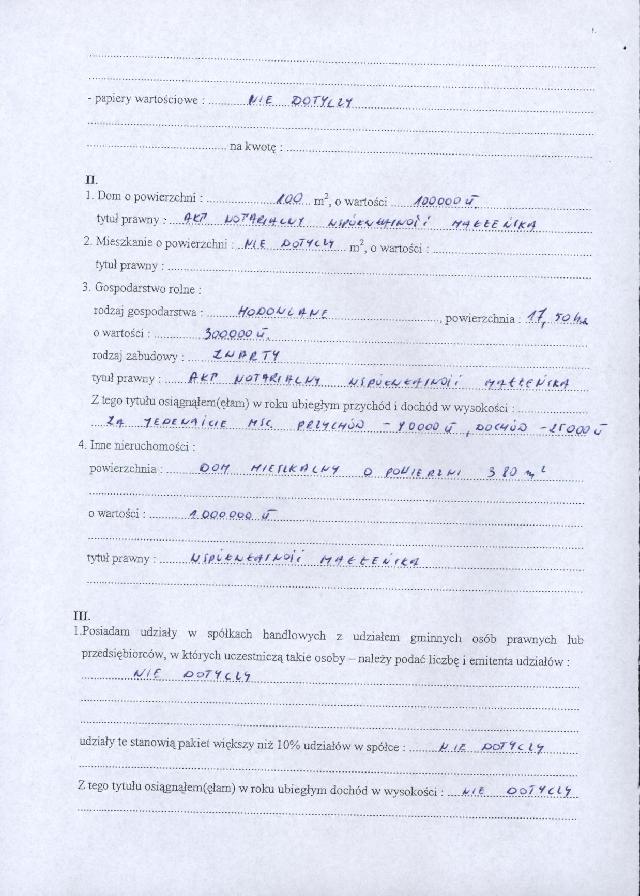 - papiery wartościowe : NIE DOTYCZY
na kwotę :
II.
1. Dom o powierzchni : 100 m², o wartości 100000 zł
tytuł prawny : AKT NOTARIALNY WSPÓŁWŁASNOŚĆ MAŁŻEŃSKA
2. Mieszkanie o powierzchni : NIE DOTYCZY m², o wartości :
tytuł prawny :
3. Gospodarstwo rolne :
rodzaj gospodarstwa : HODOWLANE , powierzchnia : 17,50 ha
o wartości : 300000 zł.
rodzaj zabudowy : ZWARTY
tytuł prawny : AKT NOTARIALNY WSPÓŁWŁASNOŚĆ MAŁŻEŃSKA
Z tego tytułu osiągnąłem(ęłam) w roku ubiegłym przychód i dochód w wysokości :
ZA JEDENAŚCIE MSC. PRZYCHÓD - 90000 zł , DOCHÓD - 25000 zł
4. Inne nieruchomości :
powierzchnia : DOM MIESZKALNY O POWIERZNI 380 m²
o wartości : 1 000 000 zł
tytuł prawny : WSPÓŁWŁASNOŚĆ MAŁŻEŃSKA
III.
1.Posiadam udziały w spółkach handlowych z udziałem gminnych osób prawnych lub
przedsiębiorców, w których uczestniczą takie osoby – należy podać liczbę i emitenta udziałów :
NIE DOTYCZY
udziały te stanowią pakiet większy niż 10% udziałów w spółce : NIE DOTYCZY
Z tego tytułu osiągnąłem(ęłam) w roku ubiegłym dochód w wysokości : NIE DOTYCZY